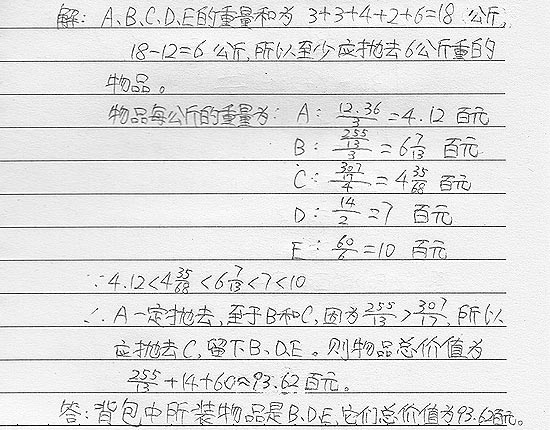 解: A、B、C、D、E的重量和为 3+3+4+2+6=18 公斤,
18-12=6 公斤,所以至少应抛去6公斤重的
物品。
物品每公斤的重量为: A: 12.36/3 =4.12 百元
B: 255/13/3 =6 7/13 百元
C: 307/17/4 =4 35/68 百元
D: 14/2 =7 百元
E: 60/6 =10 百元
∵4.12<4 35/68<6 7/13<7<10
∴A一定抛去,至于B和C,因为255/13>307/17,所以
应抛去C,留下B、D、E。则物品总价值为
255/13+14+60≈93.62百元。
答:背包中所装物品是B、D、E,它们总价值为93.62百元。